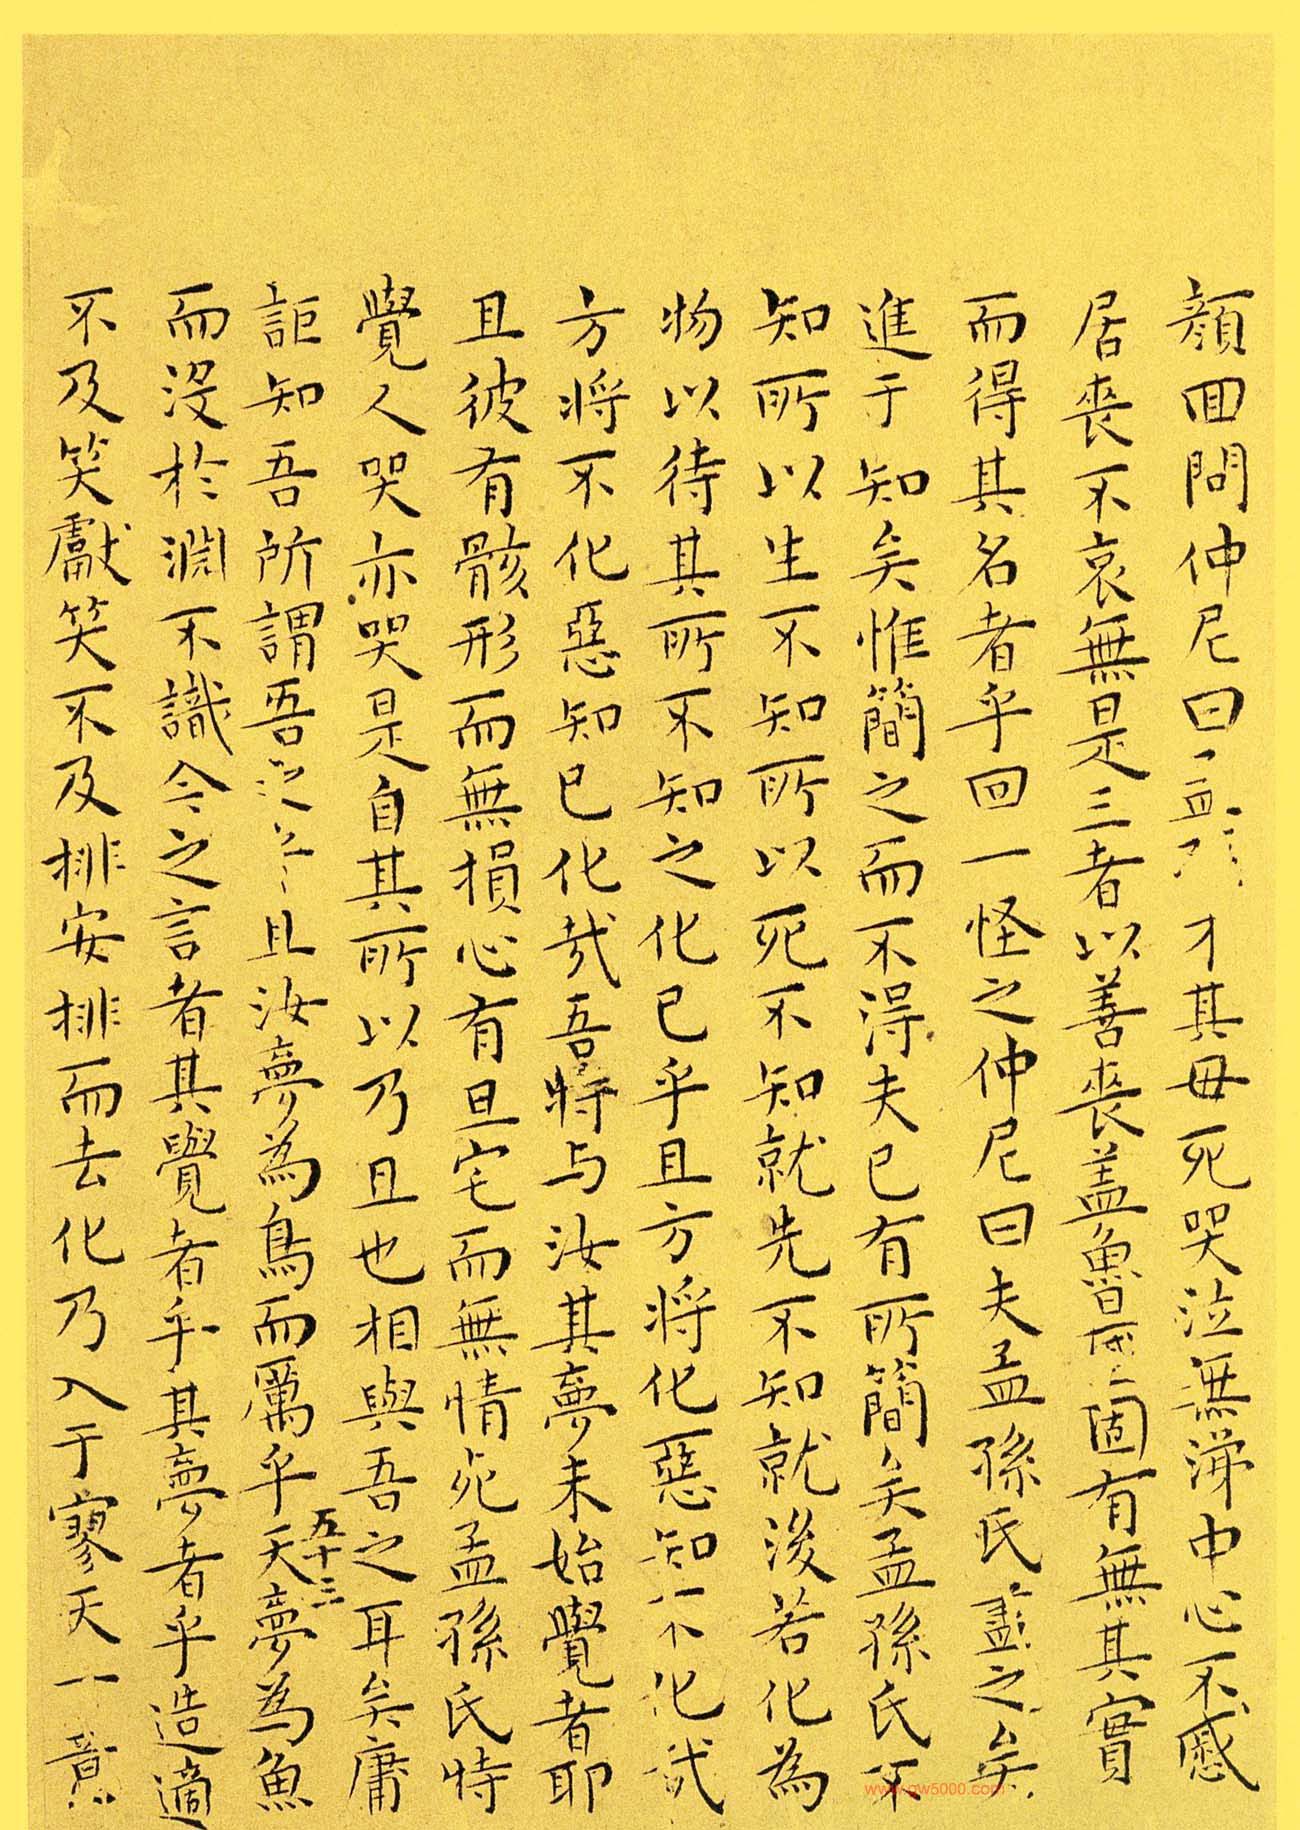 顔回問仲尼曰孟孫才其母死哭泣無涕中心不慼
居喪不哀無是三者以善喪蓋魯國固有無其實
而得其名者乎回一怪之仲尼曰夫孟孫氏盡之矣
進于知矣惟簡之而不得夫已有所簡矣孟孫氏不
知所以生不知所以死不知就先不知就後若化為
物以待其所不知之化已乎且方將化惡知不化哉
方將不化惡知已化哉吾將与汝其夢未始覺者耶
且彼有骸形而無損心有旦宅而無情死孟孫氏特
覺人哭亦哭是自其所以乃且也相與吾之耳矣庸
詎知吾所謂吾之乎且汝夢為鳥而厲乎天夢為魚
五十三
而沒於淵不識今之言者其覺者乎其夢者乎造適
不及笑獻笑不及排安排而去化乃入于寥天一 意
www.gw5000.com